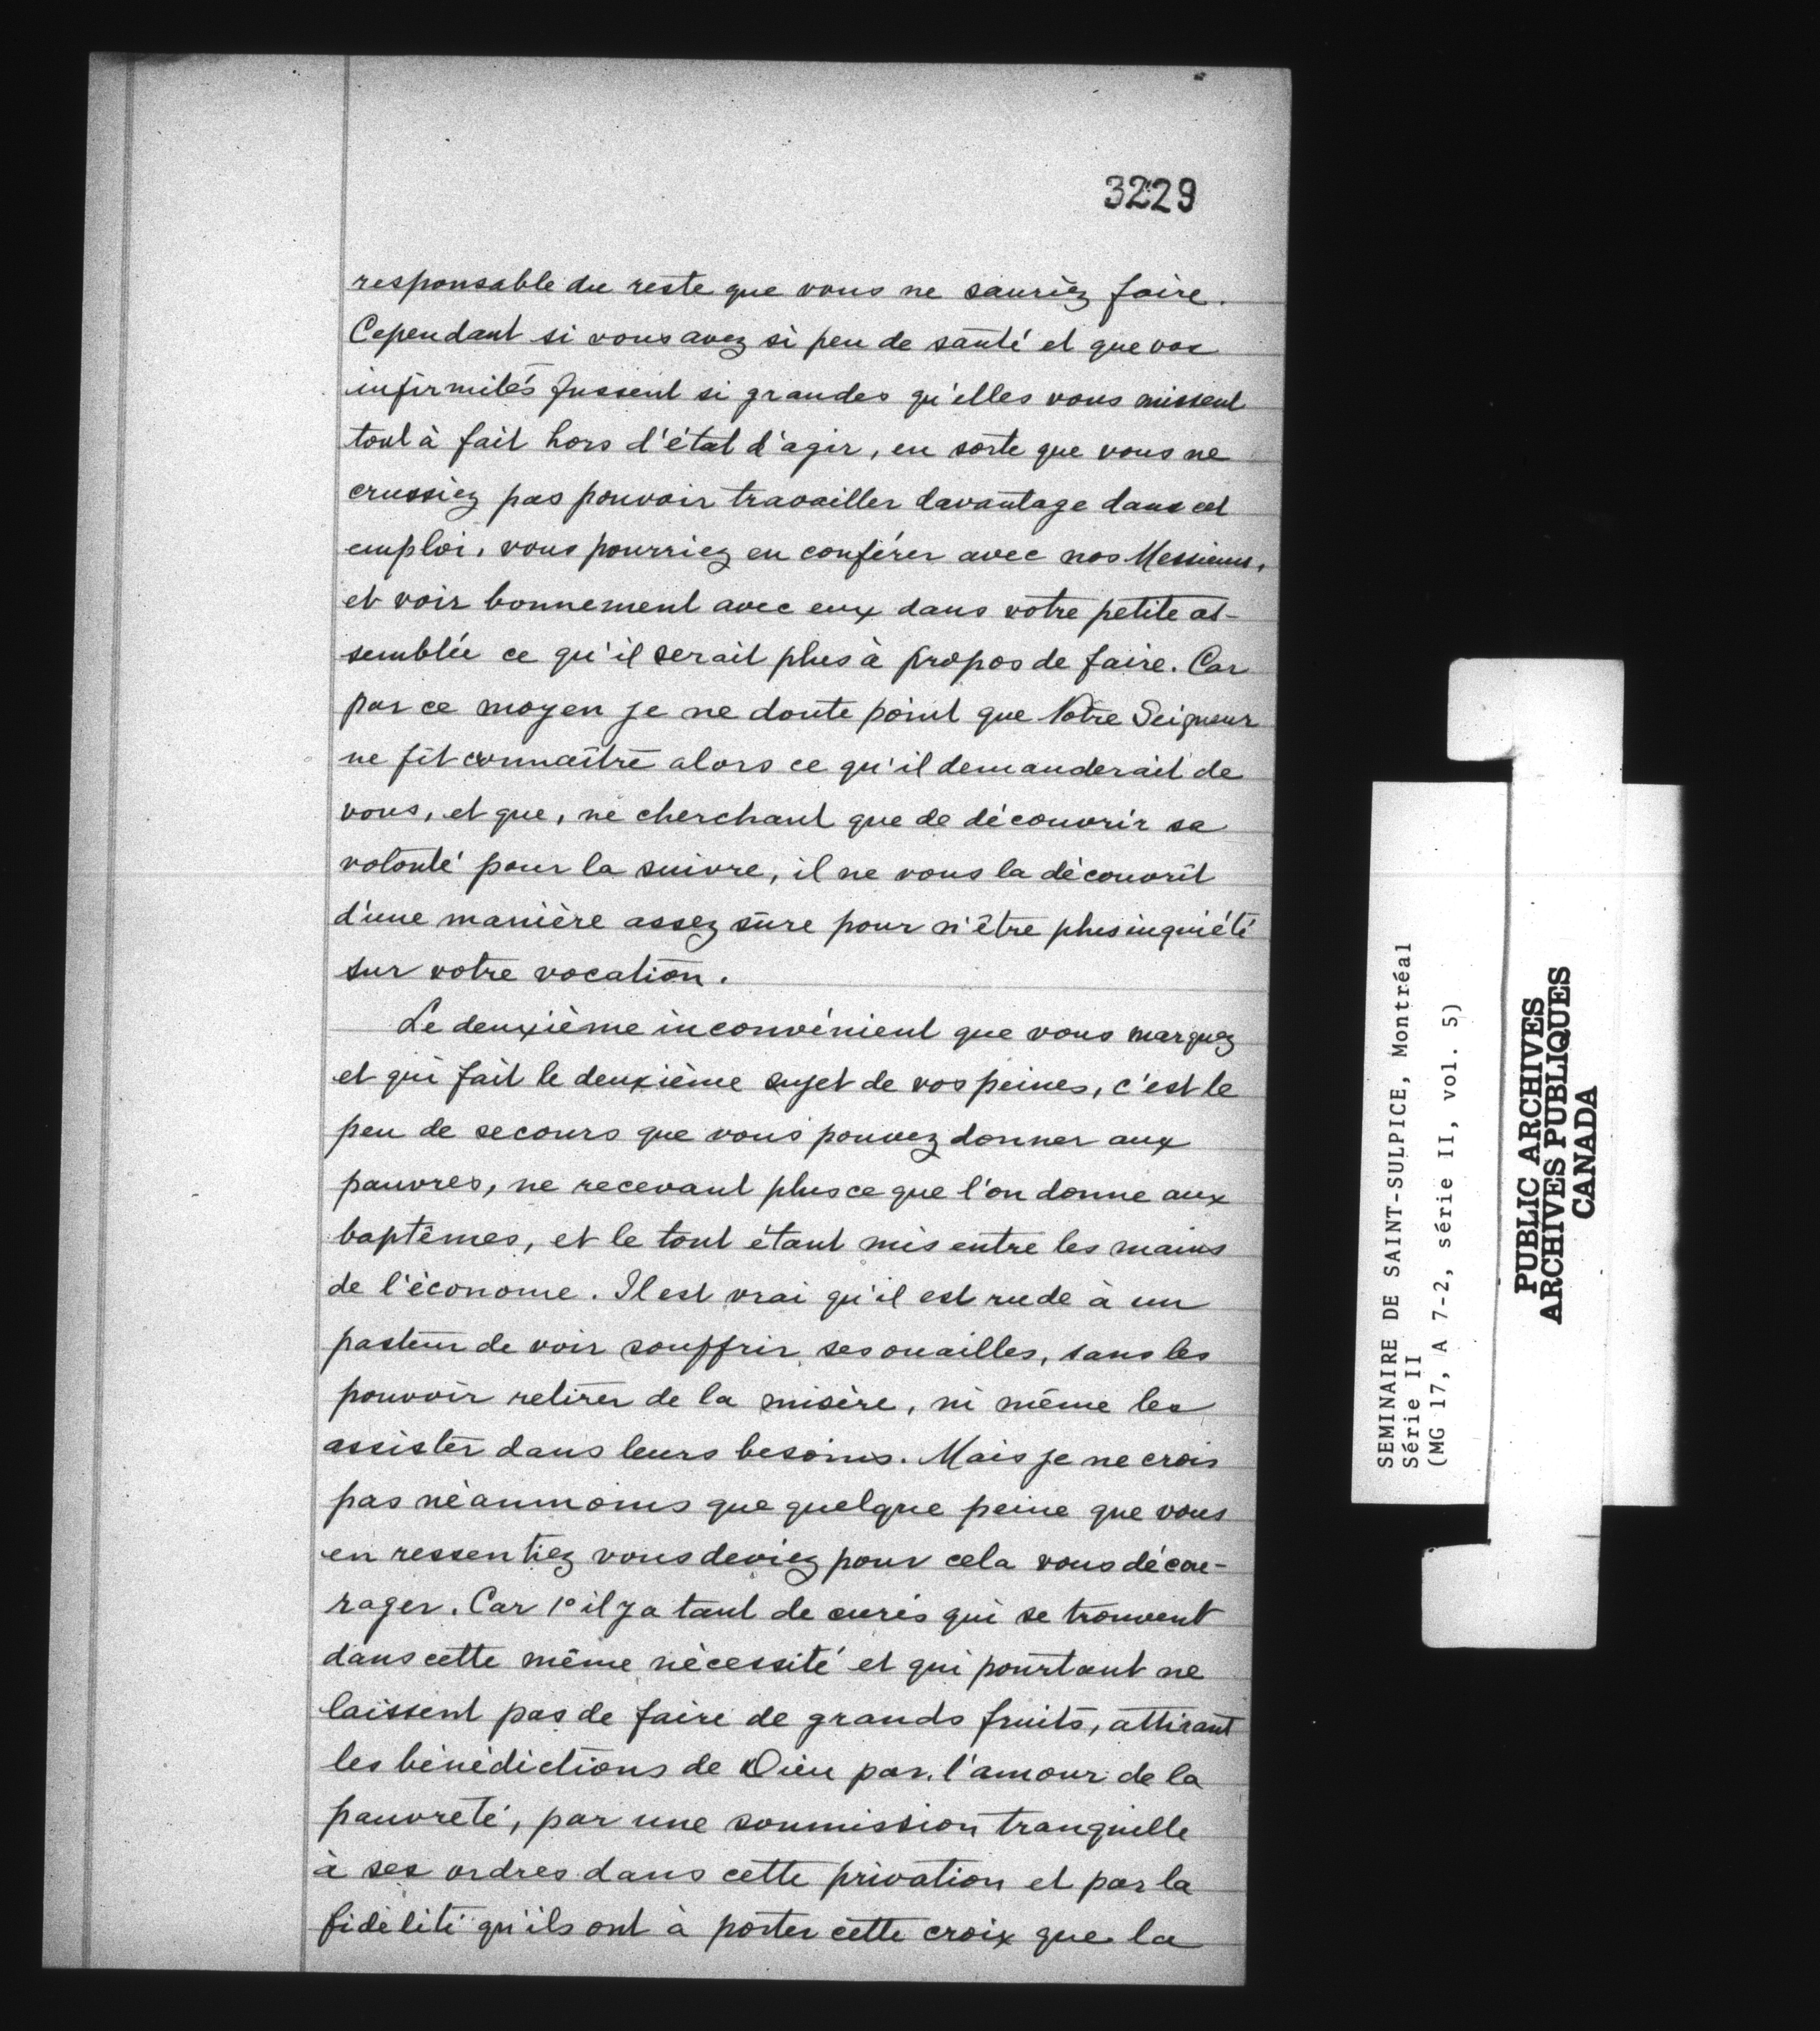 3229
responsable du reste que vous ne sauriez faire.
Cependant si vous avez si peu de santé et que vos
infirmités fussent si grandes qu'elles vous missent
tout à fait hors d'état d'agir, en sorte que vous ne
crussiez pas pouvoir travailler davantage dans cet
emploi, vous pourriez en conférer avec nos Messieurs,
et voir bonnement avec eux dans votre petite as-
semblée ce qu'il serait plus à propos de faire. Car
par ce moyen je ne doute point que Notre Seigneur
ne fît connaître alors ce qu'il demanderait de
vous, et que, ne cherchant que de découvrir sa
volonté pour la suivre, il ne vous la découvrît
d'une manière assez sûre pour n'être plus inquiété
sur votre vocation.
Le deuxième inconvénient que vous marquez
et qui fait le deuxième sujet de vos peines, c'est le
peu de secours que vous pouvez donner aux
pauvres, ne recevant plus ce que l'on donne aux
baptêmes, et le tout étant mis entre les mains
de l'économe. Il est vrai qu'il est rude à un
pasteur de voir souffrir ses ouailles, sans les
pouvoir retirer de la misère, ni même les
assister dans leurs besoins. Mais je ne crois
pas néanmoins que quelque peine que vous
en ressentiez vous deviez pour cela vous décou-
rager. Car 1° il y a tant de curés qui se trouvent
dans cette même nécessité et qui pourtant ne
laissent pas de faire de grands fruits, attirant
les bénédictions de Dieu par l'amour de la
pauvreté, par une soumission tranquille
à ses ordres dans cette privation et par la
fidélité qu'ils ont à porter cette croix que la
SEMINAIRE DE SAINT-SULPICE, Montréal
Série II
(MG 17, A 7-2, série II, vol. 5)
PUBLIC ARCHIVES
ARCHIVES PUBLIQUES
CANADA